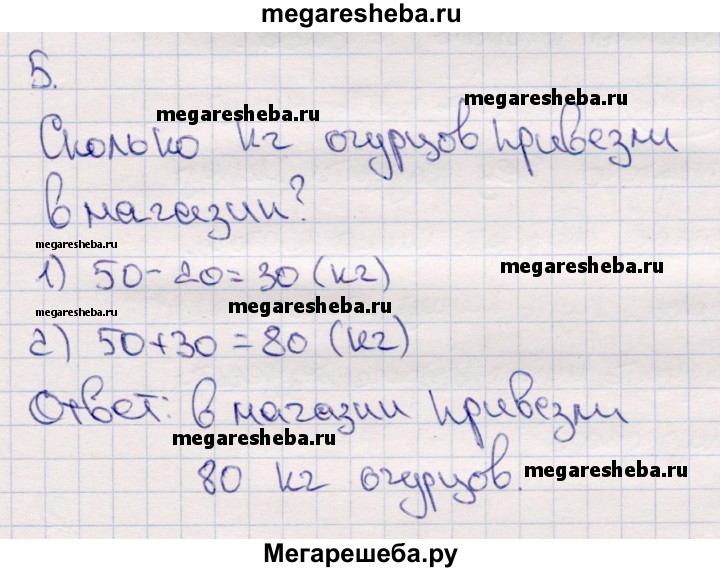 megaresheba.ru
5.
megaresheba.ru
megaresheba.ru
Сколько кг огурцов привезли
в магазин?
megaresheba.ru
megaresheba.ru
1) 50-20=30 (кг)
megaresheba.ru
megaresheba.ru
2) 50+30=80 (кг)
Ответ: в магазин привезли
megaresheba.ru
80 кг огурцов.
megaresheba.ru
Мегарешеба.ру